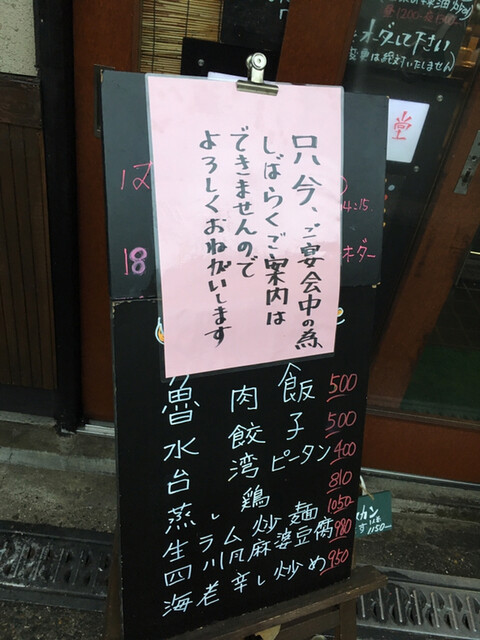 オーダして下さい
変更は絶対いたしません
堂
只今、ご宴会中の為
しばらくご案内は
できませんので
よろしくおねがいします
4:15
18
オーダー
魯肉飯 500
水餃子 500
台湾ピータン 400
蒸し鶏 810
生ラム炒麺 1050
四川風麻婆豆腐 980
海老辛し炒め 950
1150-